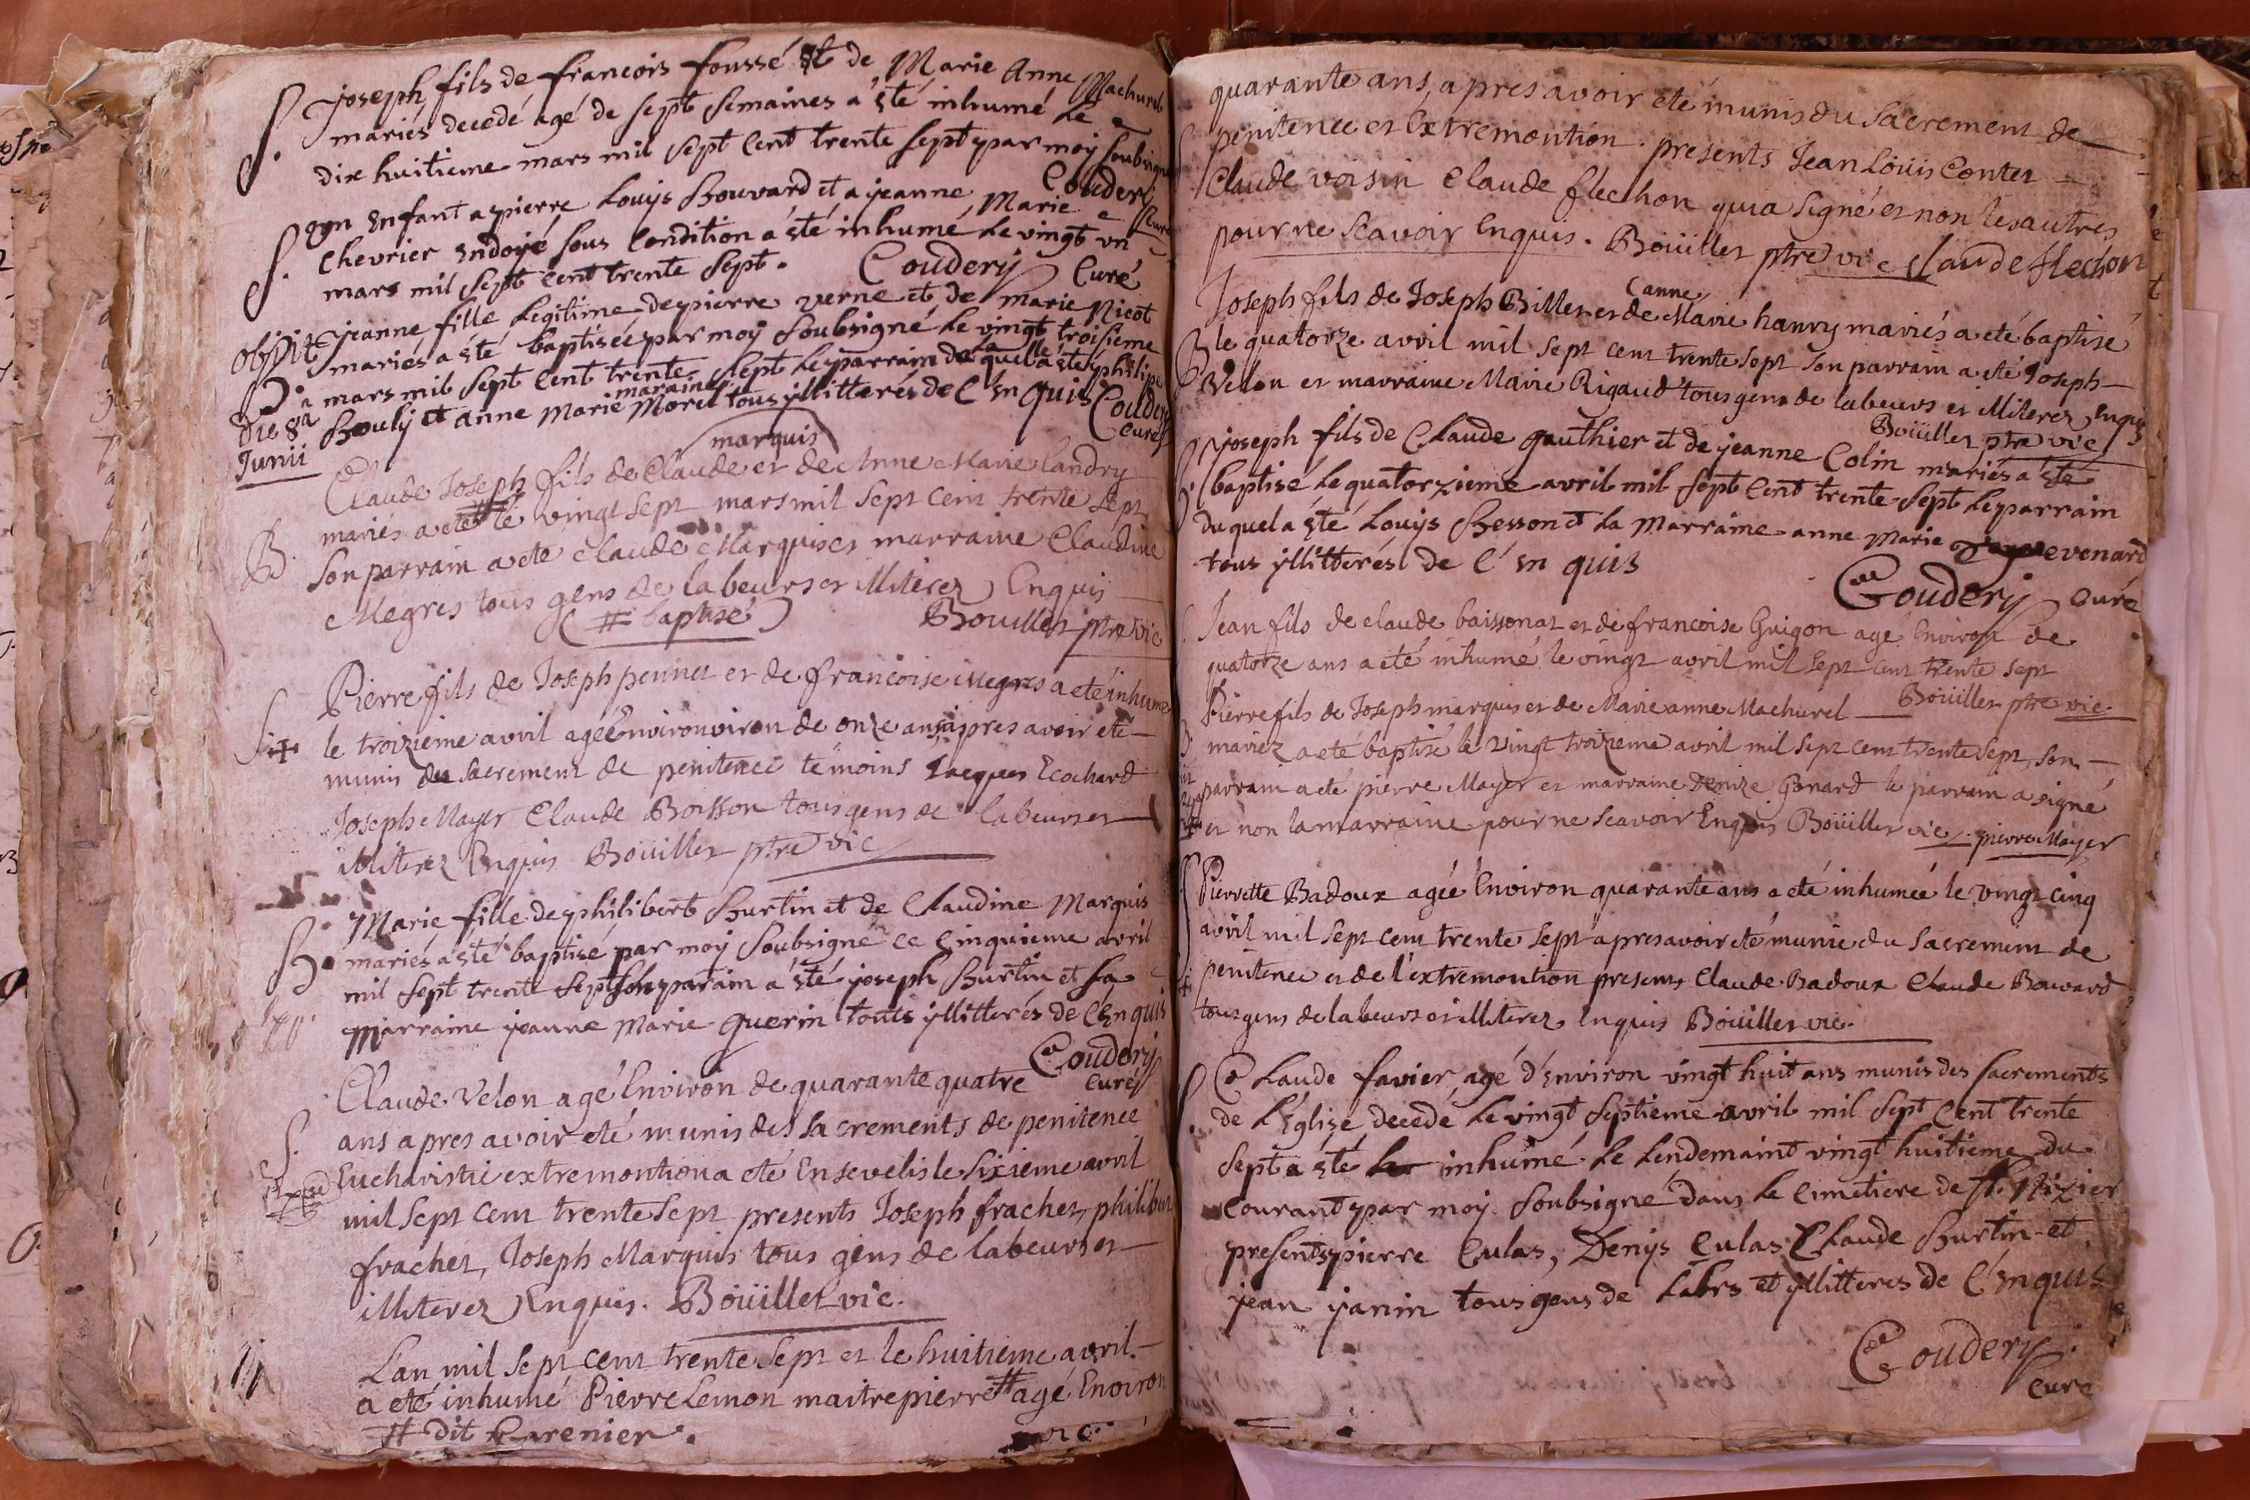 S. joseph fils de francois foussé et de Marie Anne Machurel
mariés decedé agé de sept semaines a été inhumé le
dix huitieme mars mil sept cent trente sept par moy soubsigné
Coudery Curé
S. un enfant a pierre Louys Bouvard et a jeanne Marie
Chevrier endoyé sous condition a été inhumé le vingt un
mars mil sept cent trente sept. Coudery Curé
objit jeanne fille legitime de pierre verne et de marie Nicot
mariés a été baptisée par moy soubsigné le vingt troisieme
B. mars mil sept cent trente sept le parrain de laquelle a été philipe
die 8a Bouly et anne Marie Morel maraine tous yllitterés de c'enquis Coudery
Junii curé
marquis
Claude Joseph fils de Claude et de Anne Marie landry
mariés a eté le vingt sept mars mil sept cent trente sept
B. son parrain a eté Claude Marquis et marraine Claudine
Megres tous gens de labeurs et illiterez Enquis
(# baptisé) Bouillet ptre vic
Pierre fils de Joseph pennet et de francoise Megres a eté inhumé
S. le troizieme avril agé Environ viron de onze ans apres avoir eté
munis du sacrement de penitence temoins Jacques Ecochard
Joseph Mayer Claude Boisson tous gens de labeurs et
illiterez Enquis Boüillet ptre vic
B. Marie fille de philibert Burtin et de Claudine Marquis
mariés a été baptisé par moy soubsigné ce cinquieme avril
mil sept trente sept son parain a été joseph Burtin et sa
marraine jeanne Marie Guerin touts yllitterés de c'enquis
Coudery curé
Claude Velon agé Environ de quarante quatre
S. ans apres avoir eté munis des sacrements de penitence
Eucharistie extremontion a eté Ensevelis le sixieme avril
mil sept cent trente sept presents Joseph frachet, philibert
frachet, Joseph Marquis tous gens de labeurs et
illiterez Enquis. Boüillet vic.
L'an mil sept cent trente sept et le huitieme avril
a eté inhumé Pierre Lemon maitre pierre # agé Environ
# dit Garenier.
quarante ans, apres avoir eté munis du sacrement de
penitence et Extremontion. presents Jean Loüis Contet
Claude voisin Claude flechon qui a signé et non les autres
pour ne scavoir Enquis. Boüillet ptre vic Claude flechon
(anne)
Joseph fils de Joseph Billet et de Marie hanry mariés a eté baptisé
B le quatorze avril mil sept cent trente sept son parrain a eté Joseph
Velon et marraine Marie Rigaud tous gens de labeurs et illiterez Enquis
Boüillet ptre vic
joseph fils de Claude gauthier et de jeanne Colin mariés a été
B. baptisé le quatorzieme avril mil sept cent trente sept le parrain
duquel a été Louys Besson et la marraine anne Marie evenard
tous yllitterés de c'enquis
Coudery curé
Jean fils de claude baissonat et de francoise Guigon agé Environ de
quatorze ans a eté inhumé le vingt avril mil sept cent trente sept
Boüillet ptre vic.
Pierre fils de Joseph marquis et de Marie anne Machurel
mariez a eté baptisé le vingt troizieme avril mil sept cent trente sept, son
parrain a eté pierre Mayer et marraine Denize Gonard le parrain a signé
et non la marraine pour ne scavoir Enquis Boüillet vic. pierre Mayer
Pierrette Badoux agée Environ quarante ans a eté inhumée le vingt cinq
avril mil sept cent trente sept apres avoir eté munie du sacrement de
penitence et de l'extremontion presents Claude Badoux Claude Bouvard
tous gens de labeurs et illiterez Enquis Boüillet vic.
S. Claude favier, agé d'environ vingt huit ans munis des sacrements
de l'Eglise decedé le vingt septieme avril mil sept cent trente
sept a été inhumé le lendemaint vingt huitieme du
courant par moy soubsigné dans le cimetiere de St. Nizier
presents pierre Culas, Denys Culas Claude Burtin et
jean janin tous gens de labrs et yllitteres de c'enquis
Coudery
Curé